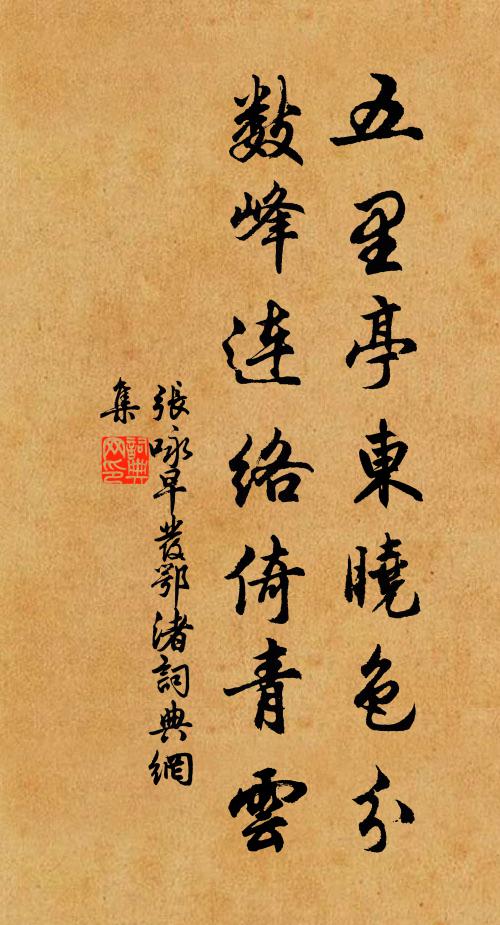 五里亭東曉色分
數峰連絡倚青雲
張咏早發鄂渚詞典網
集
詞典
网印